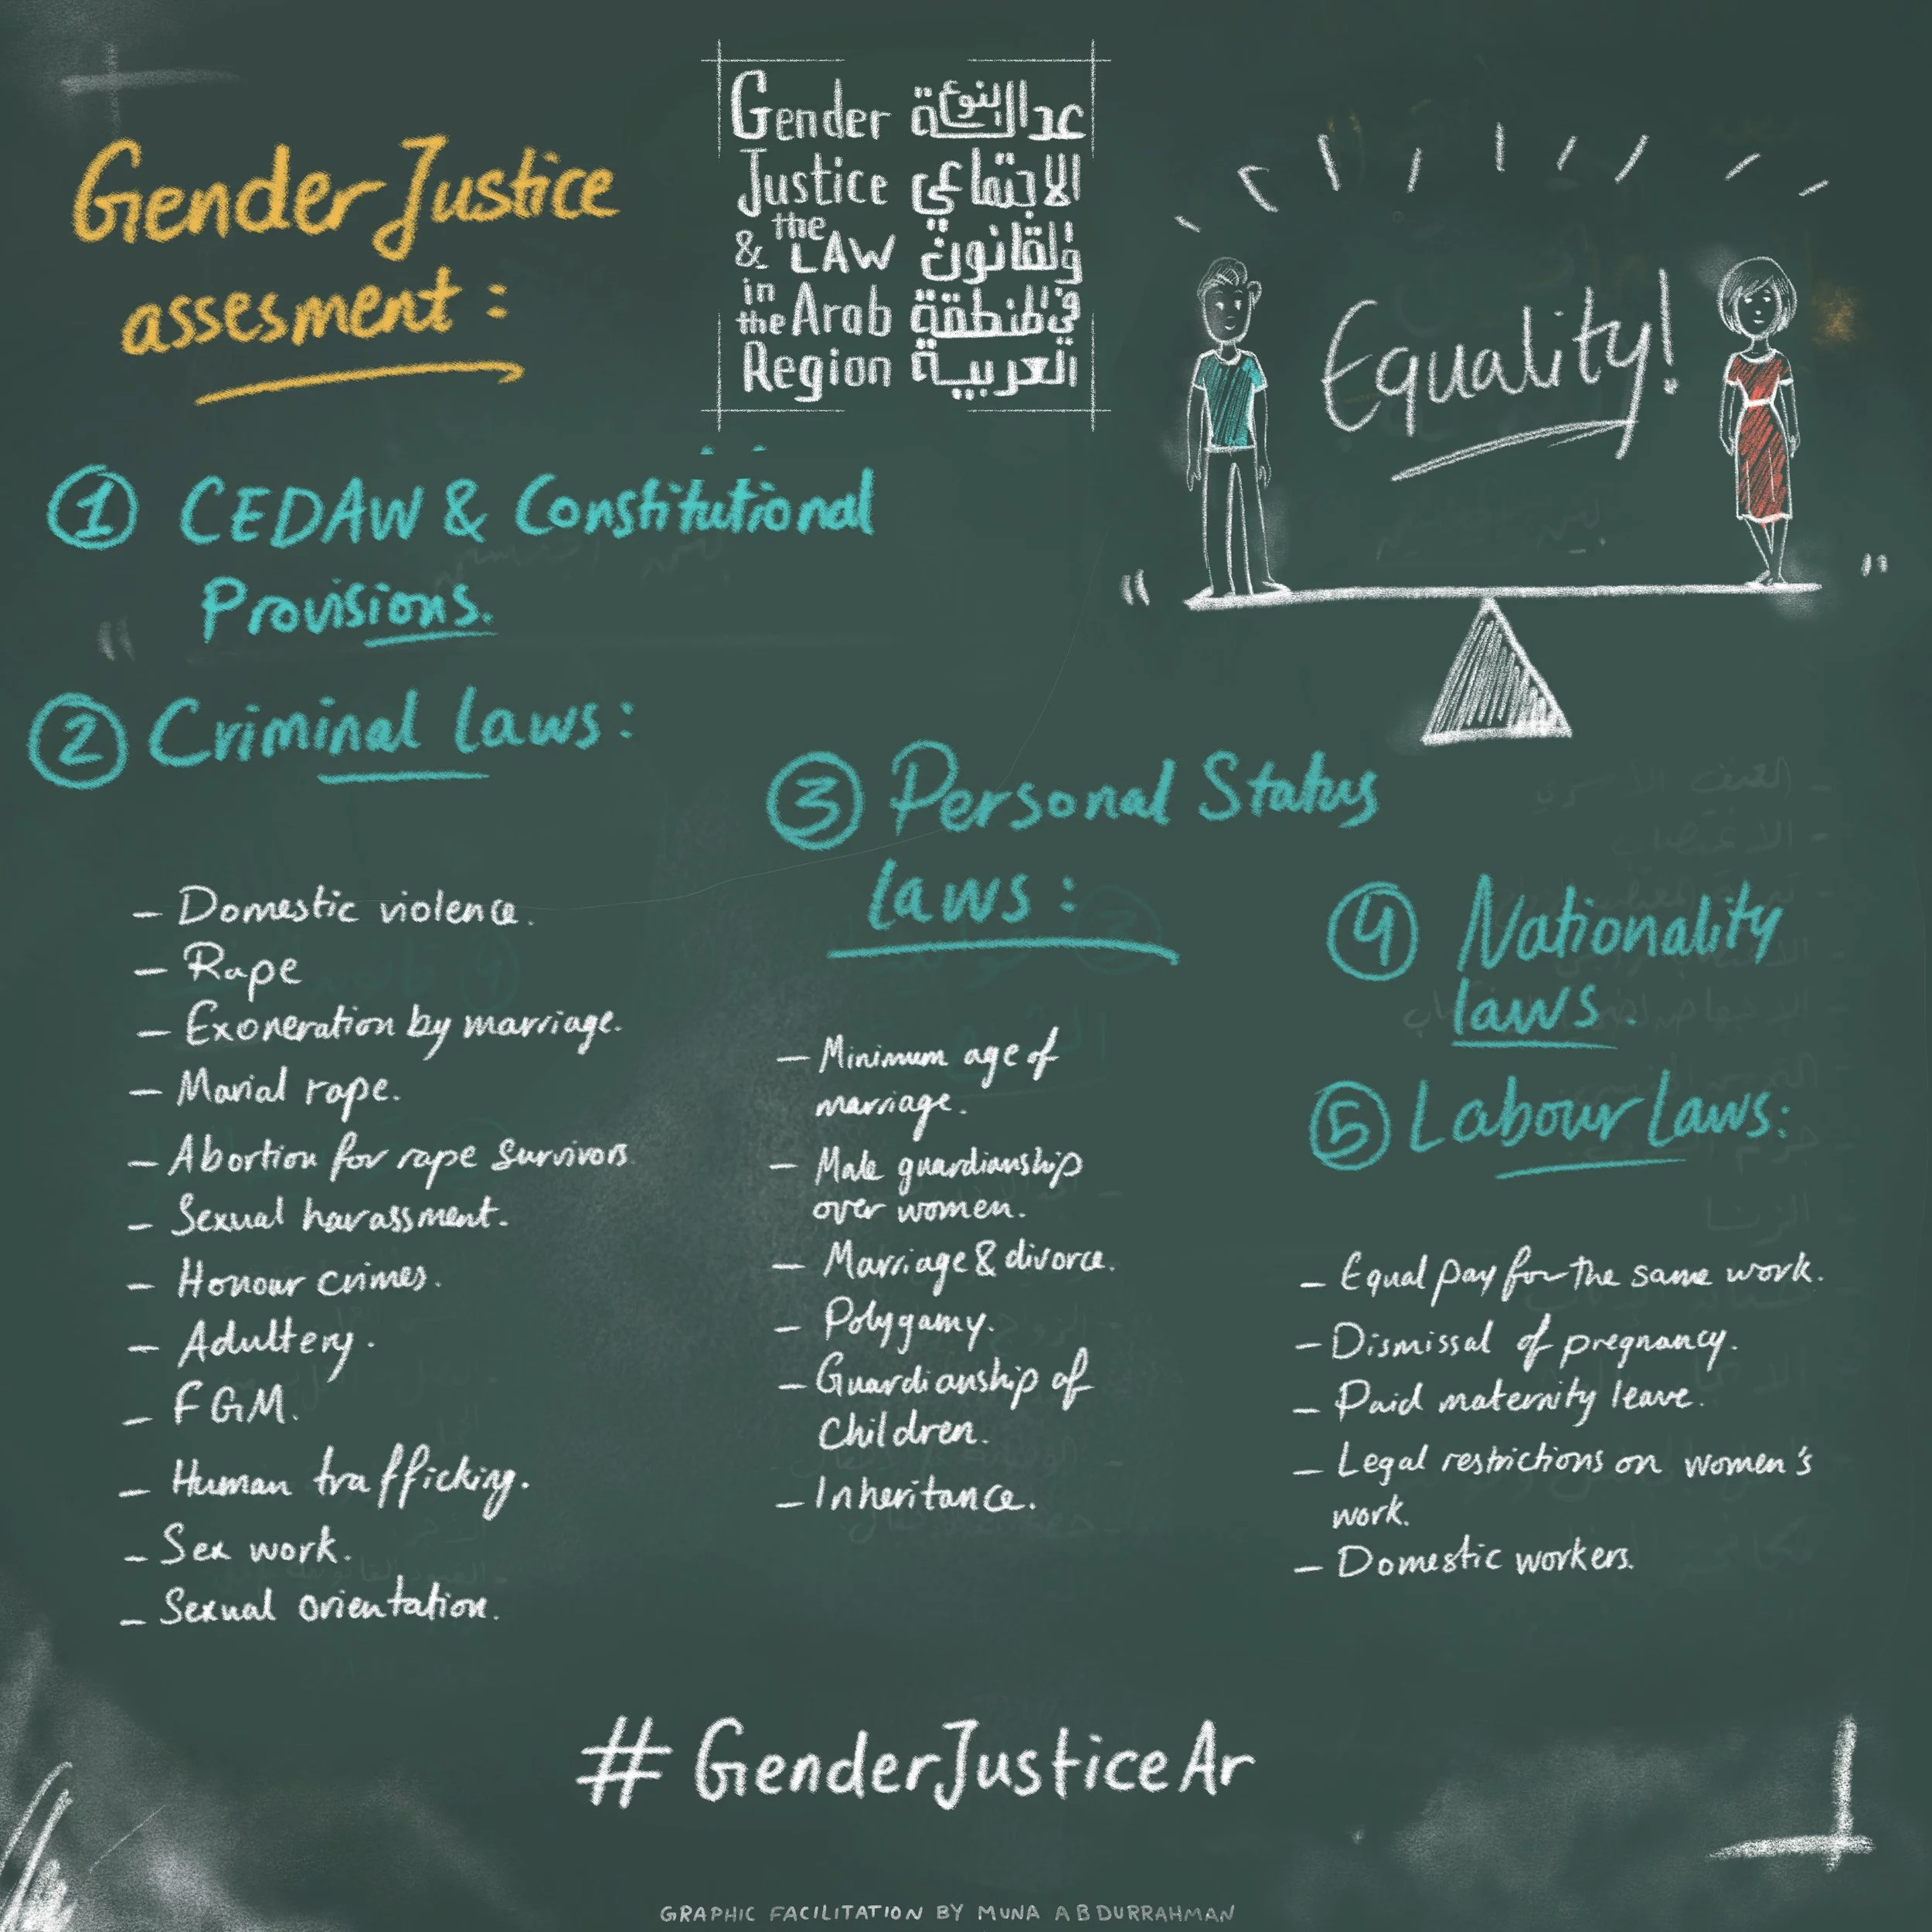 Gender Justice
assesment :
Gender
Justice
& the LAW
in
the Arab
Region
عدالة النوع
الاجتماعي
والقانون
في المنطقة
العربية
Equality!
① CEDAW & Constitutional
Provisions.
② Criminal laws:
– Domestic violence.
– Rape
– Exoneration by marriage.
– Marial rape.
– Abortion for rape survivors.
– Sexual harassment.
– Honour crimes.
– Adultery.
– FGM.
– Human trafficking.
– Sex work.
– Sexual orientation.
③ Personal Status
laws:
– Minimum age of
marriage.
– Male guardianship
over women.
– Marriage & divorce.
– Polygamy.
– Guardianship of
Children.
– Inheritance.
④ Nationality
laws.
⑤ Labour Laws:
– Equal pay for the same work.
– Dismissal of pregnancy.
– Paid maternity leave.
– Legal restrictions on women's
work.
– Domestic workers.
# GenderJusticeAr
GRAPHIC FACILITATION BY MUNA ABDURRAHMAN